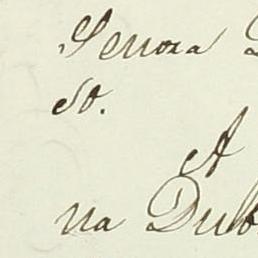 Senora
so.
A
na Dub